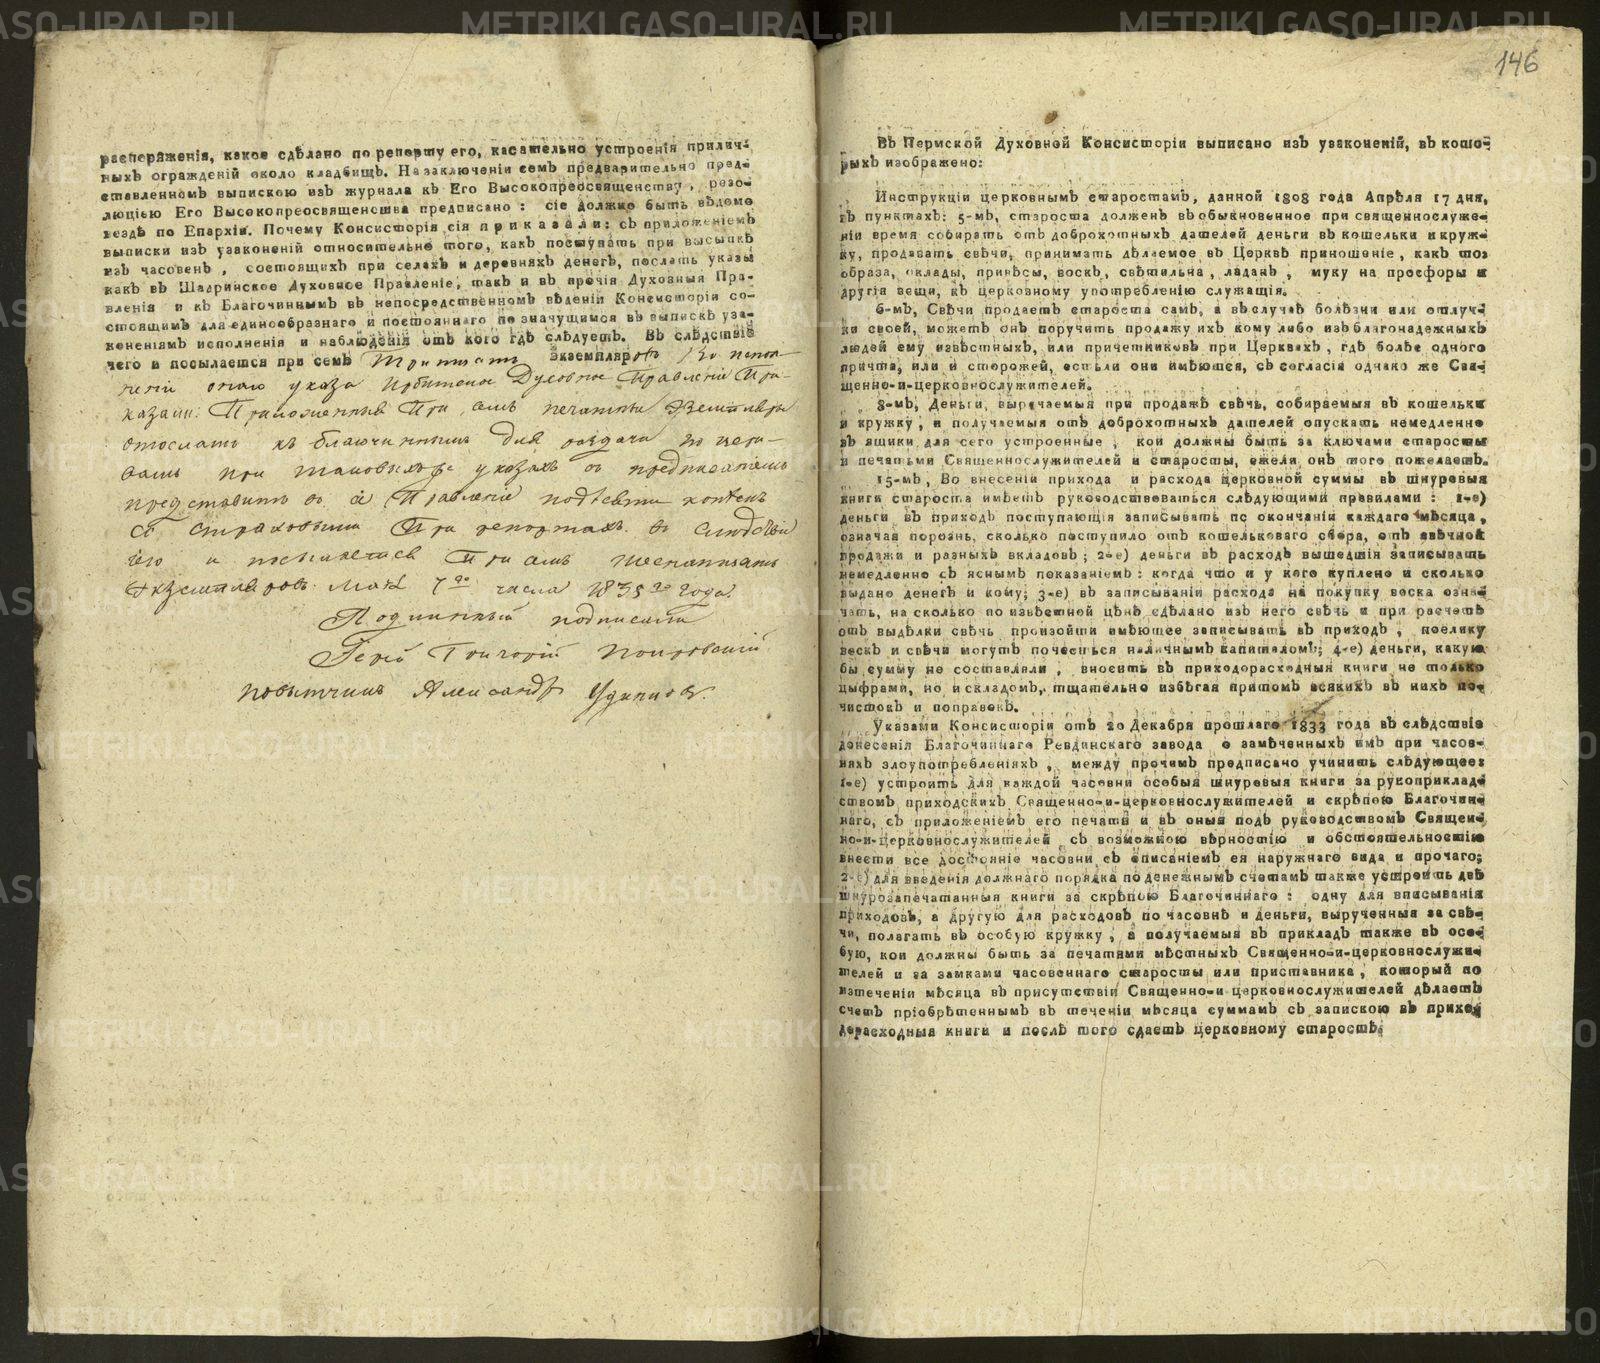 распоряженія, какое сдѣлано по репорту его, касательно устроенія прилич-
ныхъ огражденій около кладбищъ. На заключеніи семъ предварительно пред-
ставленномъ выпискою изъ журнала къ Его Высокопреосвященству, резо-
люціею Его Высокопреосвященства предписано: сіе должно быть вѣдомо
вездѣ по Епархіи. Почему Консисторія сія приказали: съ приложеніемъ
выписки изъ узаконеній относительно того, какъ поступать при высыпкѣ
изъ часовенъ, состоящихъ при селахъ и деревняхъ денегъ, послать указы
какъ въ Шадринское Духовное Правленіе, такъ и въ прочія Духовныя Пра-
вленія и къ Благочиннымъ въ непосредственномъ вѣденіи Консисторіи со-
стоящимъ для единообразнаго и постояннаго по значущимся въ выпискѣ уза-
коненіямъ исполненія и наблюденія отъ кого гдѣ слѣдуетъ. Въ слѣдствіе
чего и посылается при семъ Тритцать экземпляровъ Во испол-
неніи онаго указа Ирбитское Духовное Правленіе При-
казали: Приложенныя При семъ печатныя Экземпляры
отослать къ благочиннымъ для раздачи по церк-
вамъ при таковыхъ указахъ съ предписаніемъ
представить въ сіе Правленіе
При репортахъ. въ слѣдствіи
чего и посылается При семъ шеснатцать
Экземпляровъ. Мая 7го числа 1835го года.
Подлинный подписали
Іерей Григорій Понровскій
повытчикъ Александръ Удинцовъ.
146
Въ Пермской Духовной Консисторіи выписано изъ узаконеній, въ кото-
рыхъ изображено:
Инструкціи церковнымъ старостамъ, данной 1808 года Апрѣля 17 дня,
въ пунктахъ: 5-мъ, староста долженъ въ обыкновенное при священнослуже-
ніи время собирать отъ доброхотныхъ дателей деньги въ кошельки и круж-
ку, продавать свѣчи, принимать дѣлаемое въ Церквѣ приношеніе, какъ то:
образа, оклады, привѣсы, воскъ, свѣтильна, ладанъ, муку на просфоры и
другія вещи, къ церковному употребленію служащія.
6-мъ, Свѣчи продаетъ староста самъ, а въ случаѣ болѣзни или отлуч-
ки своей, можетъ онъ поручить продажу ихъ кому либо изъ благонадежныхъ
людей ему извѣстныхъ, или причетниковъ при Церквахъ, гдѣ болѣе одного
причта, или и сторожей, естьли они имѣются, съ согласія однако же Свя-
щенно-и-церковнослужителей.
8-мъ, Деньги, выручаемыя при продажѣ свѣчь, собираемыя въ кошельки
и кружку, и получаемыя отъ доброхотныхъ дателей опускать немедленно
въ ящики для сего устроенные, кои должны быть за ключами старосты
и печатьми Священнослужителей и старосты, ежели онъ того пожелаетъ.
15-мъ, Во внесеніи прихода и расхода церковной суммы въ шнуревыя
книги староста имѣетъ руководствоваться слѣдующими правилами: 1-е)
деньги въ приходъ поступающія записывать по окончаніи каждаго мѣсяца,
означая порознь, сколько поступило отъ кошельковаго сбора, отъ свѣчной
продажи и разныхъ вкладовъ; 2-е) деньги въ расходъ вышедшія записывать
немедленно съ яснымъ показаніемъ: когда что и у кого куплено и сколько
выдано денегъ и кому; 3-е) въ записываніи расхода на покупку воска озна-
чать, на сколько по извѣстной цѣнѣ сдѣлано изъ него свѣчь и при расчетѣ
отъ выдѣлки свѣчь произойти имѣющее записывать въ приходъ, поелику
воскъ и свѣчи могутъ почесться наличнымъ капиталомъ; 4-е) деньги, какую
бы сумму не составляли, вносить въ приходорасходныя книги не только
цыфрами, но и складомъ, тщательно избѣгая притомъ всякихъ въ нихъ по-
чистокъ и поправокъ.
Указами Консисторіи отъ 20 Декабря прошлаго 1833 года въ слѣдствіе
донесенія Благочиннаго Ревдинскаго завода о замѣченныхъ имъ при часов-
няхъ злоупотребленіяхъ, между прочимъ предписано учинить слѣдующее:
1-е) устроить для каждой часовни особыя шнуревыя книги за рукоприклад-
ствомъ приходскихъ Священно-и-церковнослужителей и скрѣпою Благочин-
наго, съ приложеніемъ его печати и въ оныя подъ руководствомъ Священ-
но-и-церковнослужителей съ возможною вѣрностію и обстоятельностію
внести все достояніе часовни съ описаніемъ ея наружнаго вида и прочаго;
2-е) для введенія должнаго порядка по денежнымъ счетамъ также устроить двѣ
шнурозапечатанныя книги за скрѣпою Благочиннаго: одну для вписыванія
приходовъ, а другую для расходовъ по часовнѣ и деньги, вырученныя за свѣ-
чи, полагать въ особую кружку, а получаемыя въ прикладъ также въ осо-
бую, кои должны быть за печатями мѣстныхъ Священно-и-церковнослужи-
телей и за замками часовеннаго старосты или приставника, который по
изтеченіи мѣсяца въ присутствіи Священно-и церковнослужителей дѣлаетъ
счетъ пріобрѣтеннымъ въ теченіи мѣсяца суммамъ съ запискою въ прихо-
дорасходныя книги и послѣ того сдаетъ церковному старостѣ.